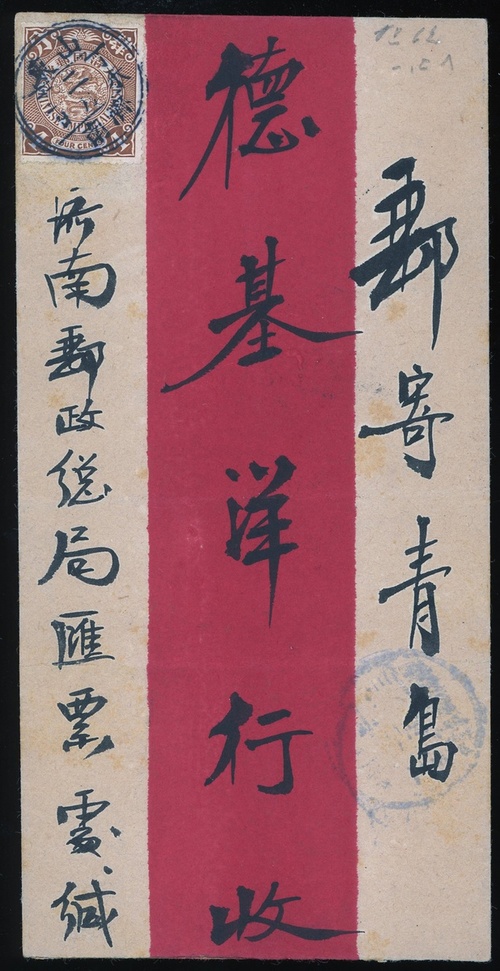 郵寄青島
德基洋行收
済南郵政總局匯票處緘
FOUR CEN